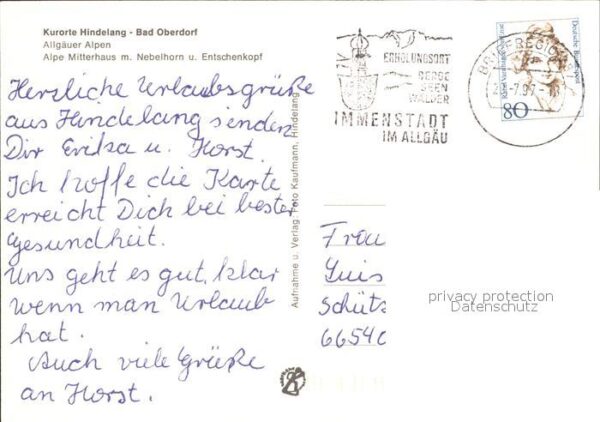 Kurorte Hindelang - Bad Oberdorf
Allgäuer Alpen
Alpe Mitterhaus m. Nebelhorn u. Entschenkopf
Herzliche Urlaubsgrüße
aus Hindelang senden
Dir Erika u. Horst.
Ich hoffe die Karte
erreicht Dich bei bester
Gesundheit.
Uns geht es gut, klar
wenn man Urlaub
hat.
Auch viele Grüße
an Horst.
Aufnahme u. Verlag: Foto Kaufmann, Hindelang
ERHOLUNGSORT
BERGE
SEEN
WÄLDER
IMMENSTADT
IM ALLGÄU
BRIEFREGION
Deutsche Bundespost
80
Frau
Luis
Schütz
6654
privacy protection
Datenschutz